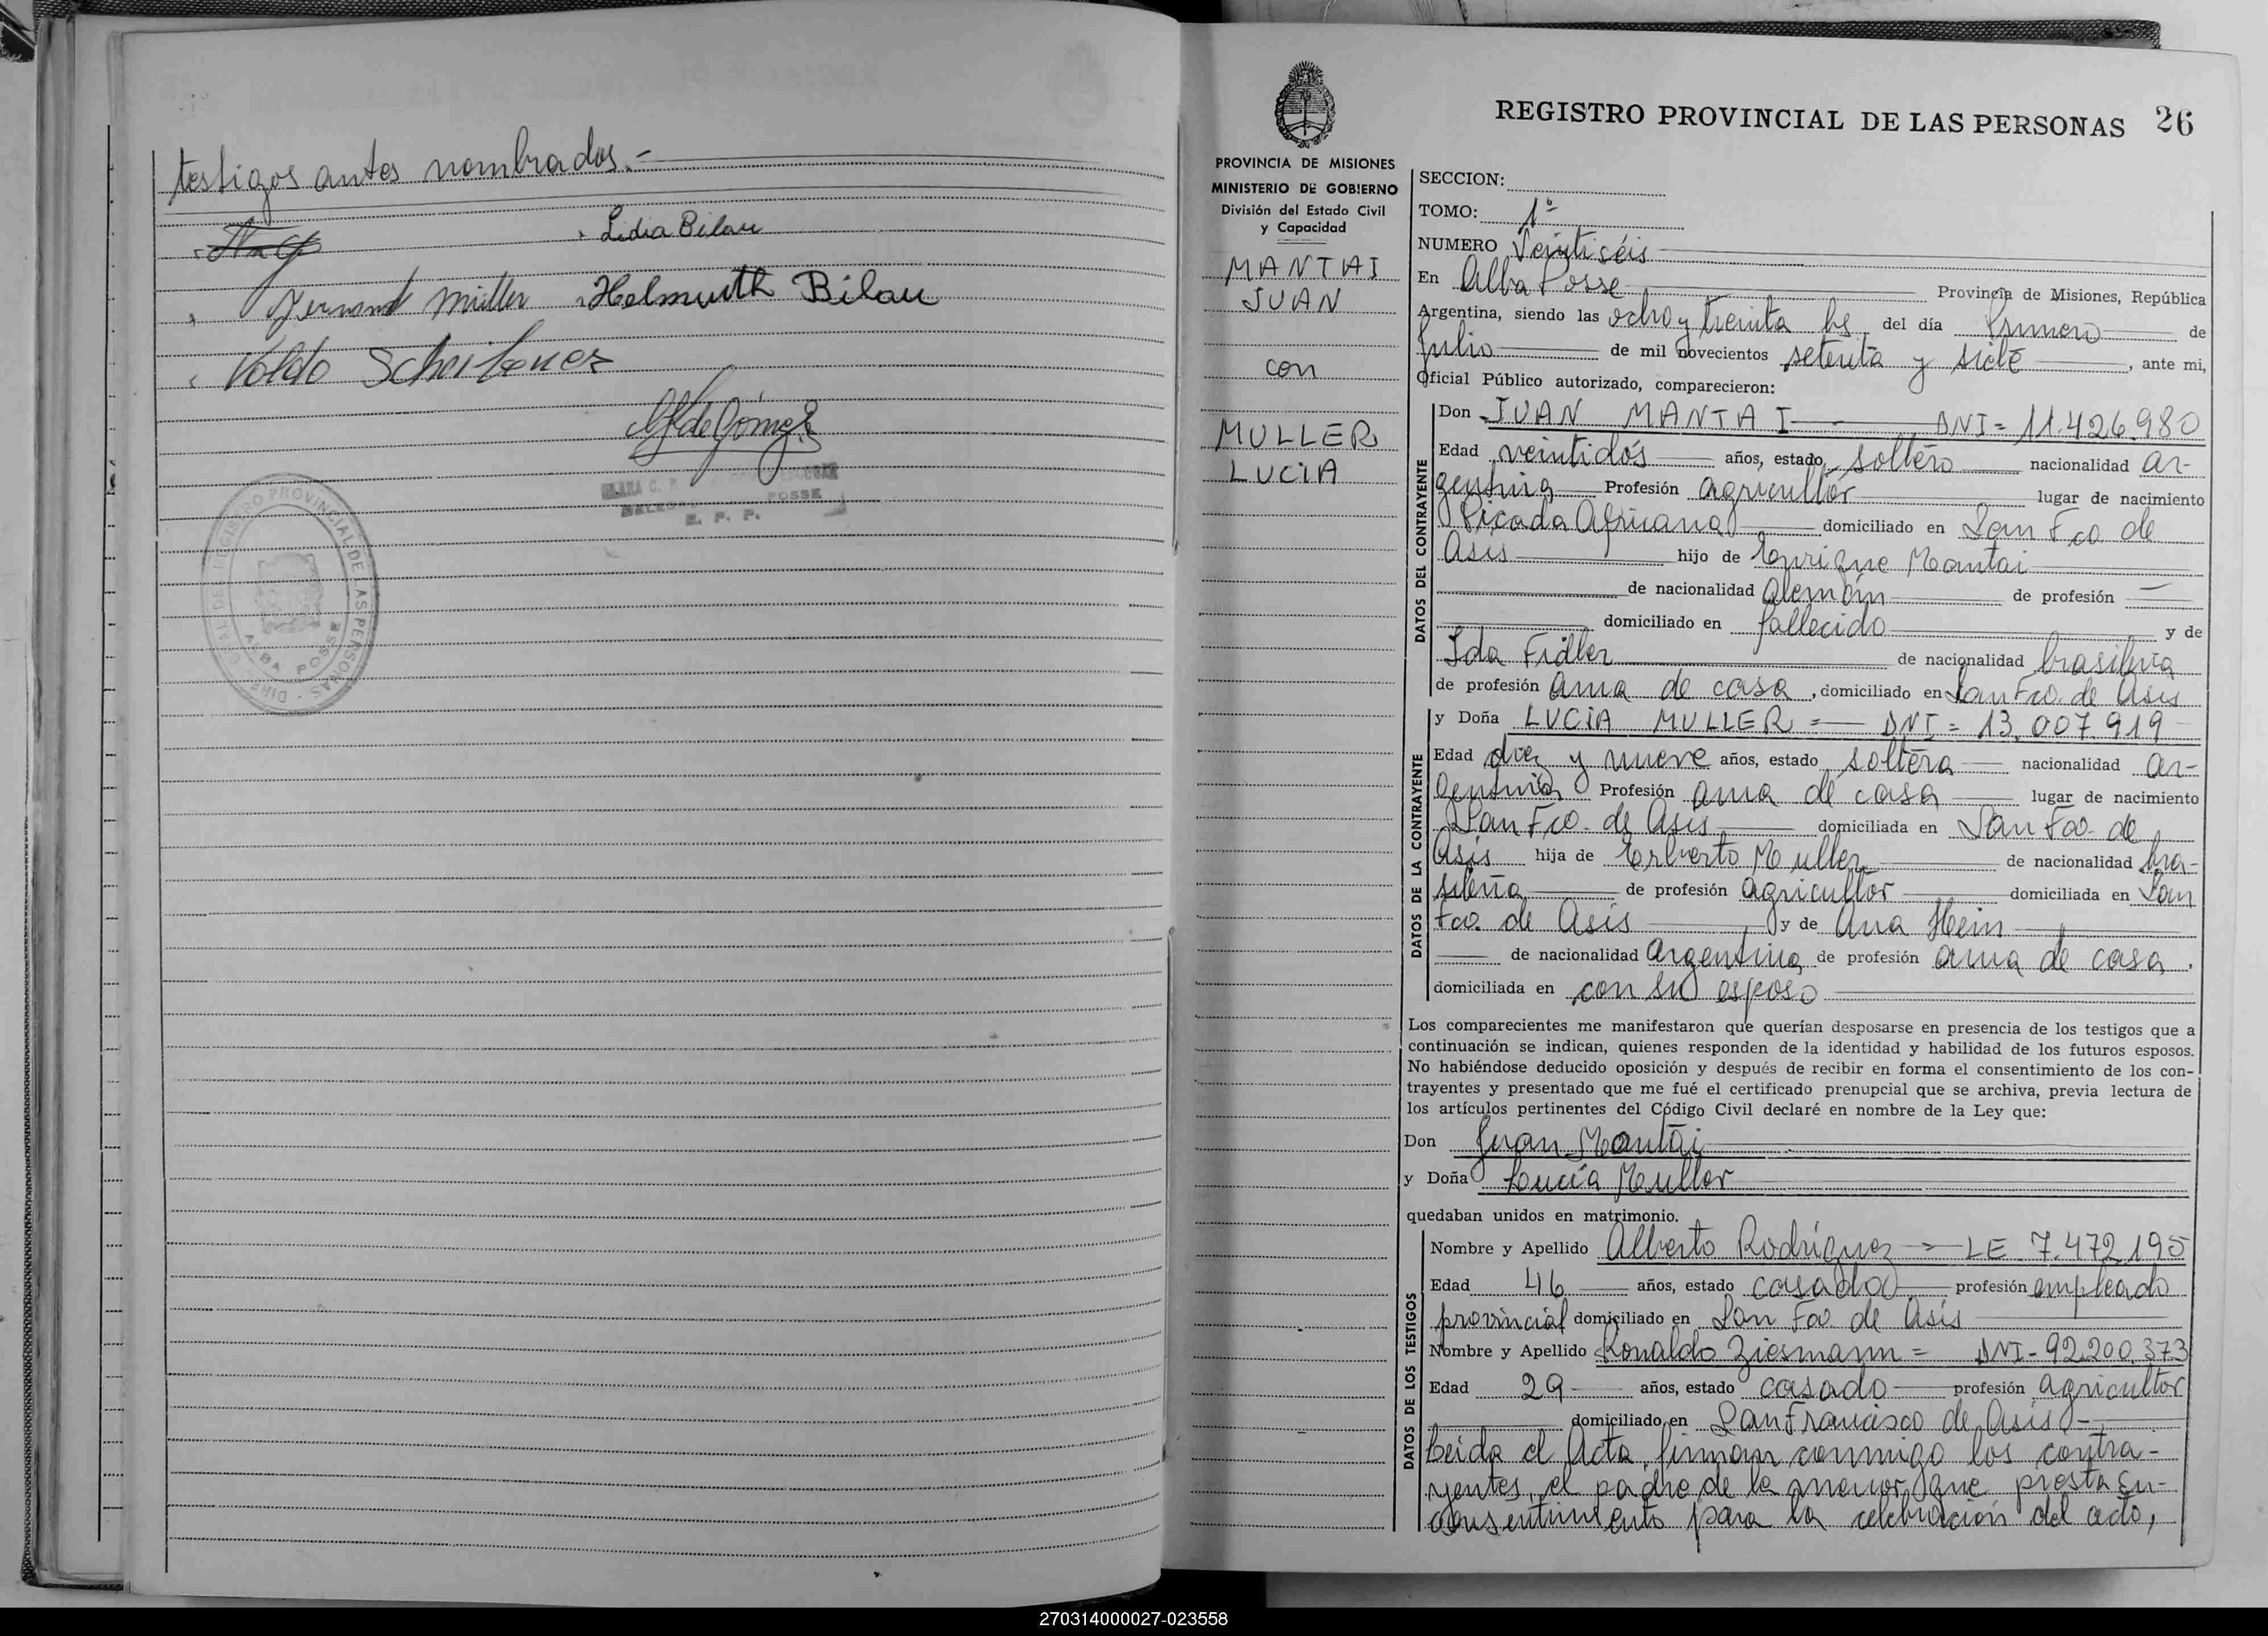 testigos antes nombrados.-
Lidia Bilau
Helmuth Bilau
Müller
Valdo
DIRE GRAL DEL REGISTRO PROVINCIAL DE LAS PERSONAS -
ALBA POSSE
POSSE
REGISTRO PROVINCIAL DE LAS PERSONAS 26
PROVINCIA DE MISIONES
MINISTERIO DE GOBIERNO
División del Estado Civil
y Capacidad
MANTAI
JUAN
con
MULLER
LUCIA
SECCION:
TOMO: 1º
NUMERO Veintiséis
En Alba Posse Provincia de Misiones, República
Argentina, siendo las ocho y treinta hs del día Primero de
Julio de mil novecientos setenta y siete, ante mi,
Oficial Público autorizado, comparecieron:
DATOS DEL CONTRAYENTE
Don JUAN MANTAI - DNI= 11.426.980
Edad veintidós años, estado soltero nacionalidad ar-
gentina Profesión agricultor lugar de nacimiento
Picada Africana domiciliado en San Fco. de
Asís hijo de Enrique Mantai
de nacionalidad alemán de profesión —
domiciliado en fallecido y de
Ida Fidler de nacionalidad brasileña
de profesión ama de casa, domiciliado en San Fco. de Asís
DATOS DE LA CONTRAYENTE
y Doña LUCIA MULLER = DNI = 13.007.919
Edad diez y nueve años, estado soltera nacionalidad ar-
gentina Profesión ama de casa lugar de nacimiento
San Fco. de Asís domiciliada en San Fco. de
Asís hija de Erberto Muller de nacionalidad bra-
sileña de profesión agricultor domiciliada en San
Fco. de Asís y de Ana Hein
de nacionalidad argentina de profesión ama de casa,
domiciliada en con su esposo
Los comparecientes me manifestaron que querían desposarse en presencia de los testigos que a
continuación se indican, quienes responden de la identidad y habilidad de los futuros esposos.
No habiéndose deducido oposición y después de recibir en forma el consentimiento de los con-
trayentes y presentado que me fué el certificado prenupcial que se archiva, previa lectura de
los artículos pertinentes del Código Civil declaré en nombre de la Ley que:
Don Juan Mantai
y Doña Lucía Muller
quedaban unidos en matrimonio.
DATOS DE LOS TESTIGOS
Nombre y Apellido Alberto Rodríguez - LE 7.472.195
Edad 46 años, estado casado profesión empleado
provincial domiciliado en San Fco de Asís
Nombre y Apellido Ronaldo Ziesmann = DNI- 92.200.373
Edad 29 años, estado casado profesión agricultor
domiciliado en San Francisco de Asís.-
Leída el Acta, firman conmigo los contra-
yentes, el padre de la menor que presta su-
consentimiento para la celebración del acto,
270314000027-023558